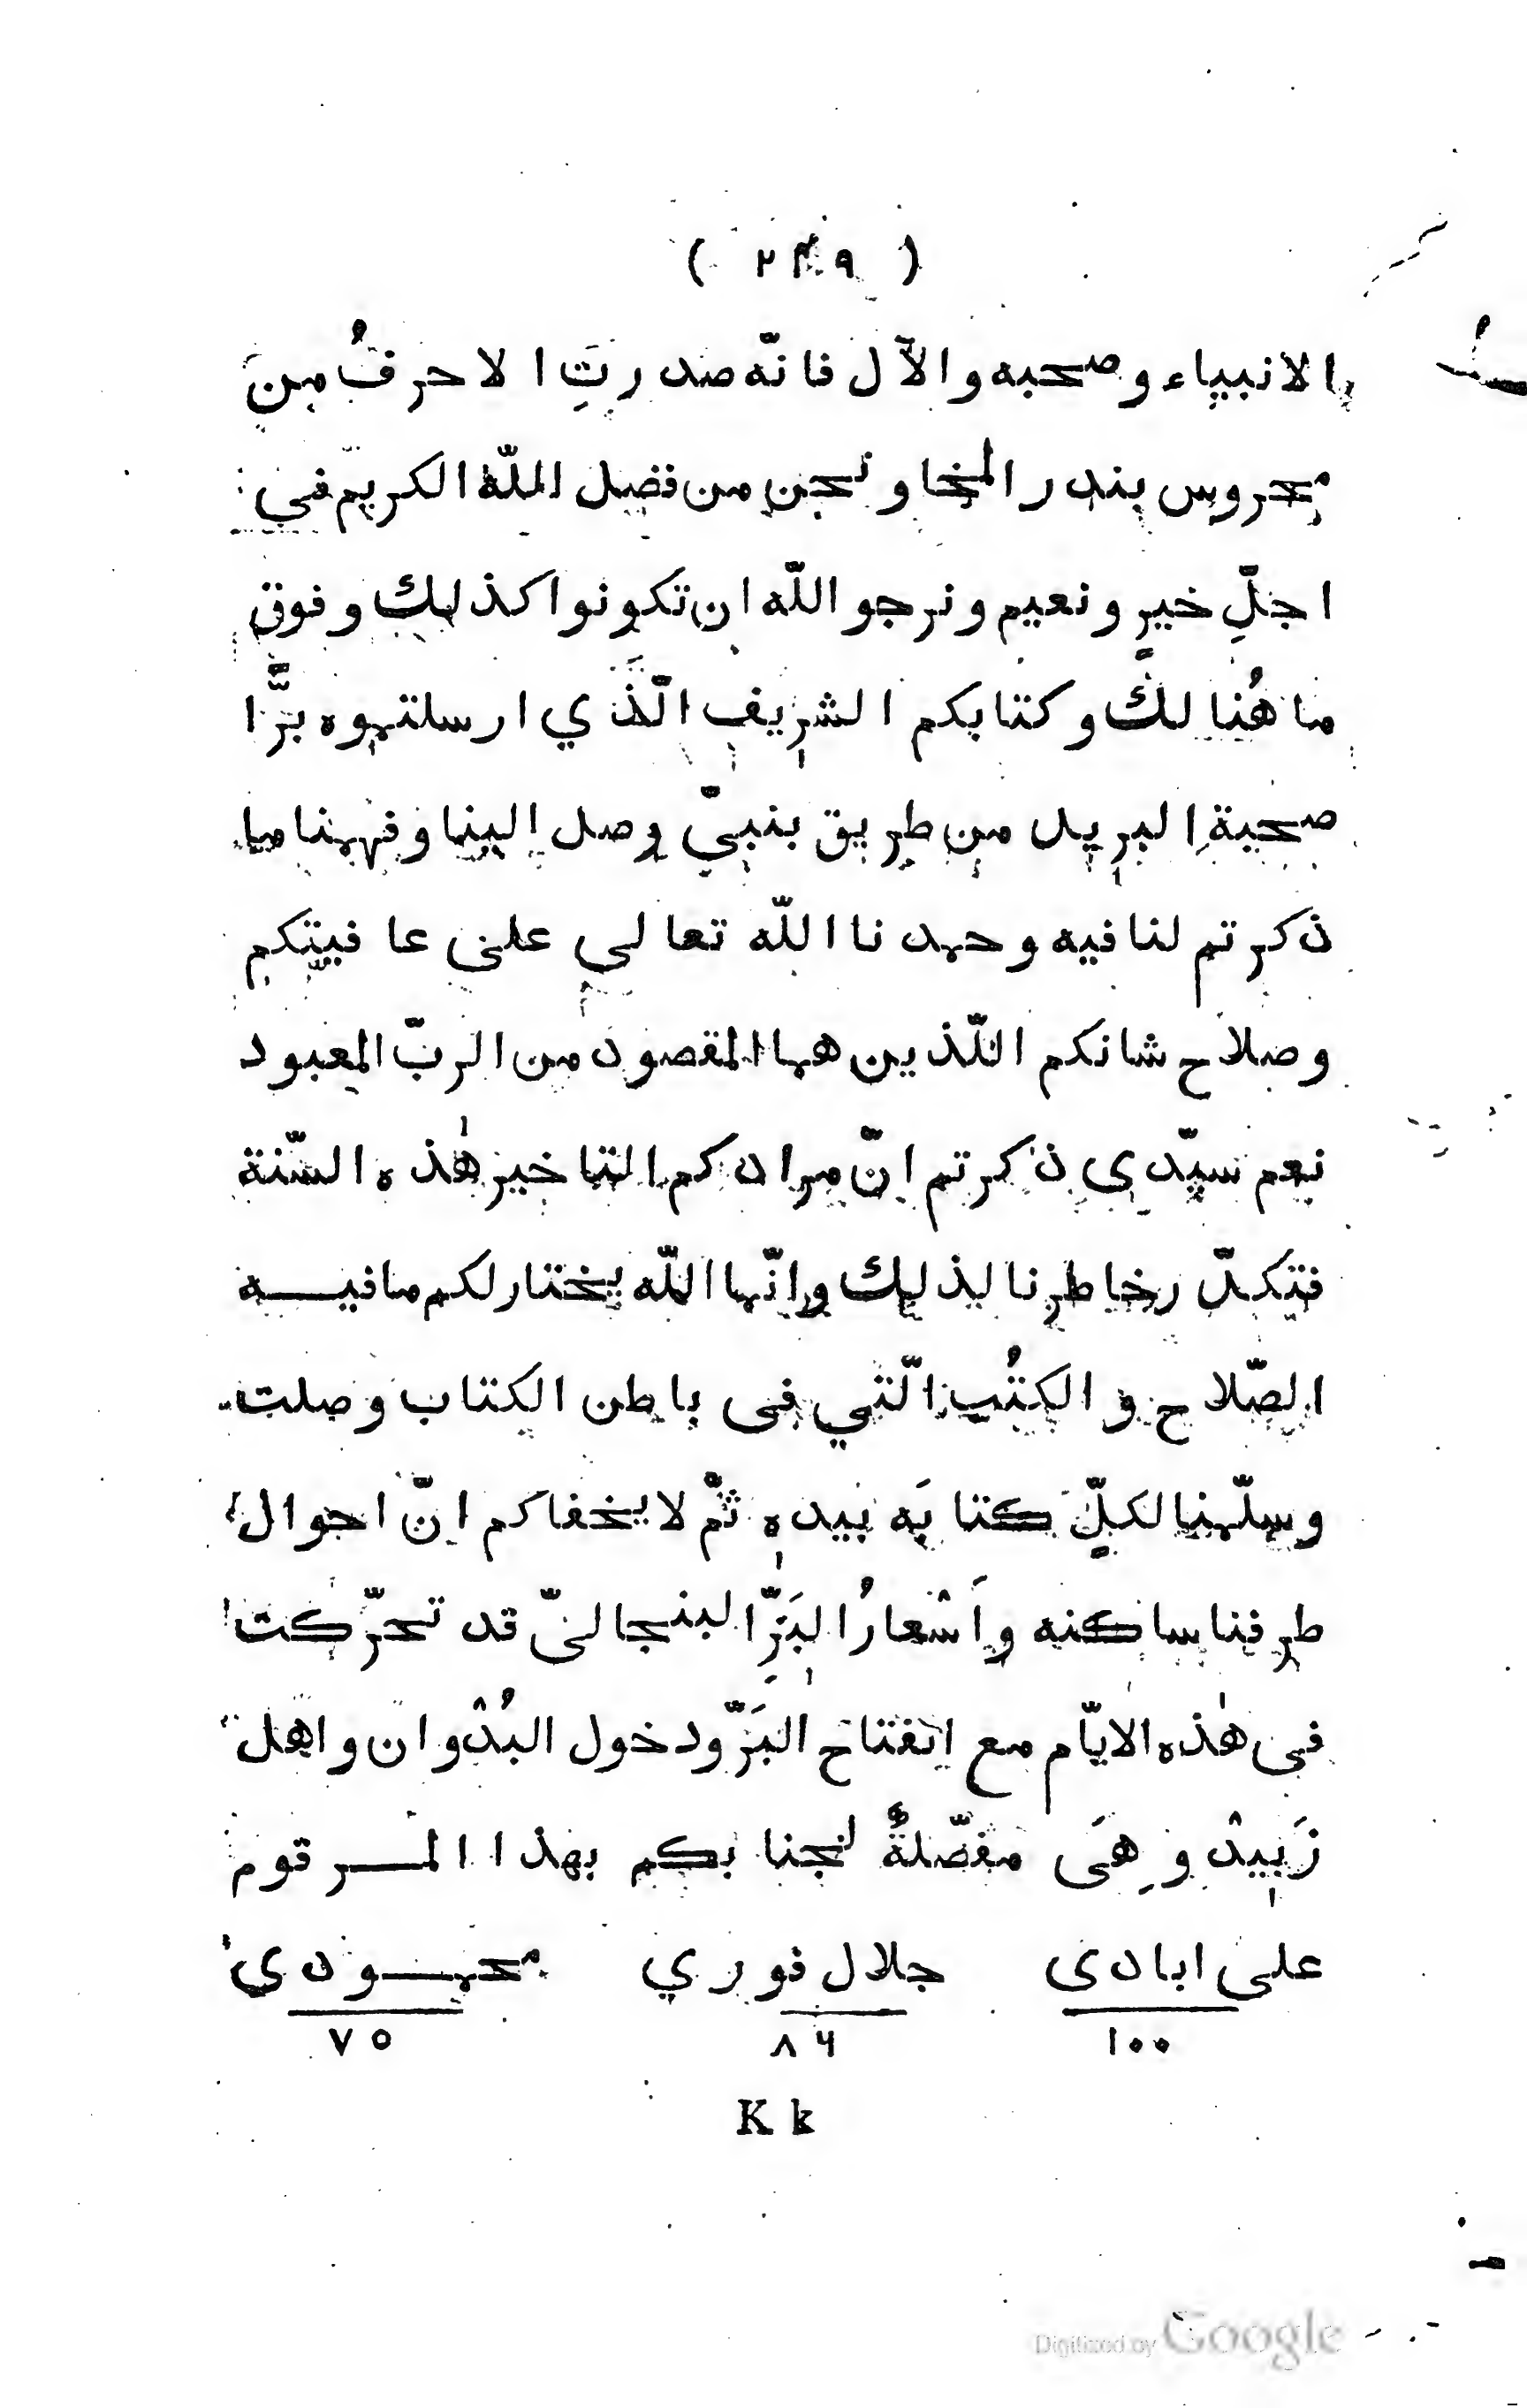 ( ٢٤٩ )
الانبياء وصحبه والآل فانّه صدرتِ الاحرفُ منَ
محروس بندر المخا ونحن من فضل اللّه الكريم في
اجلِّ خيرٍ ونعيم ونرجو اللّه ان تكونوا كذلك وفوق
ما هُنالك وكتابكم الشريف الّذي ارسلتموه برًّا
صحبةِ البريد من طريق بنبيّ وصل الينا وفهمنا ما
ذكرتم لنا فيه وحمدنا اللّه تعالى على عافيتكم
وصلاح شانكم اللّذين هما المقصود من الربّ المعبود
نعم سيّدى ذكرتم انّ مرادكم التاخير هٰذه السّنة
فتكدّر خاطرنا لذلك وانّما اللّه يختار لكم ما فيه
الصّلاح والكتُب الّتي فى باطن الكتاب وصلت
وسلّمنا لكلٍّ كتابَه بيدهِ ثمّ لا يخفاكم انّ احوال
طرفنا ساكنه وَاَسْعارُ البَزِّ البنجاليّ قد تحرّكت
فى هٰذه الايّام مع اِنفتاح البَرّ ودخول البُدْوان واهل
زَبِيدْ وهِىَ مفصّلةٌ لجنابكم بهذا المرقوم
على ابادى جلال فوري محمودي
١٠٠ ٨٦ ٧٥
K k
Digitized by Google